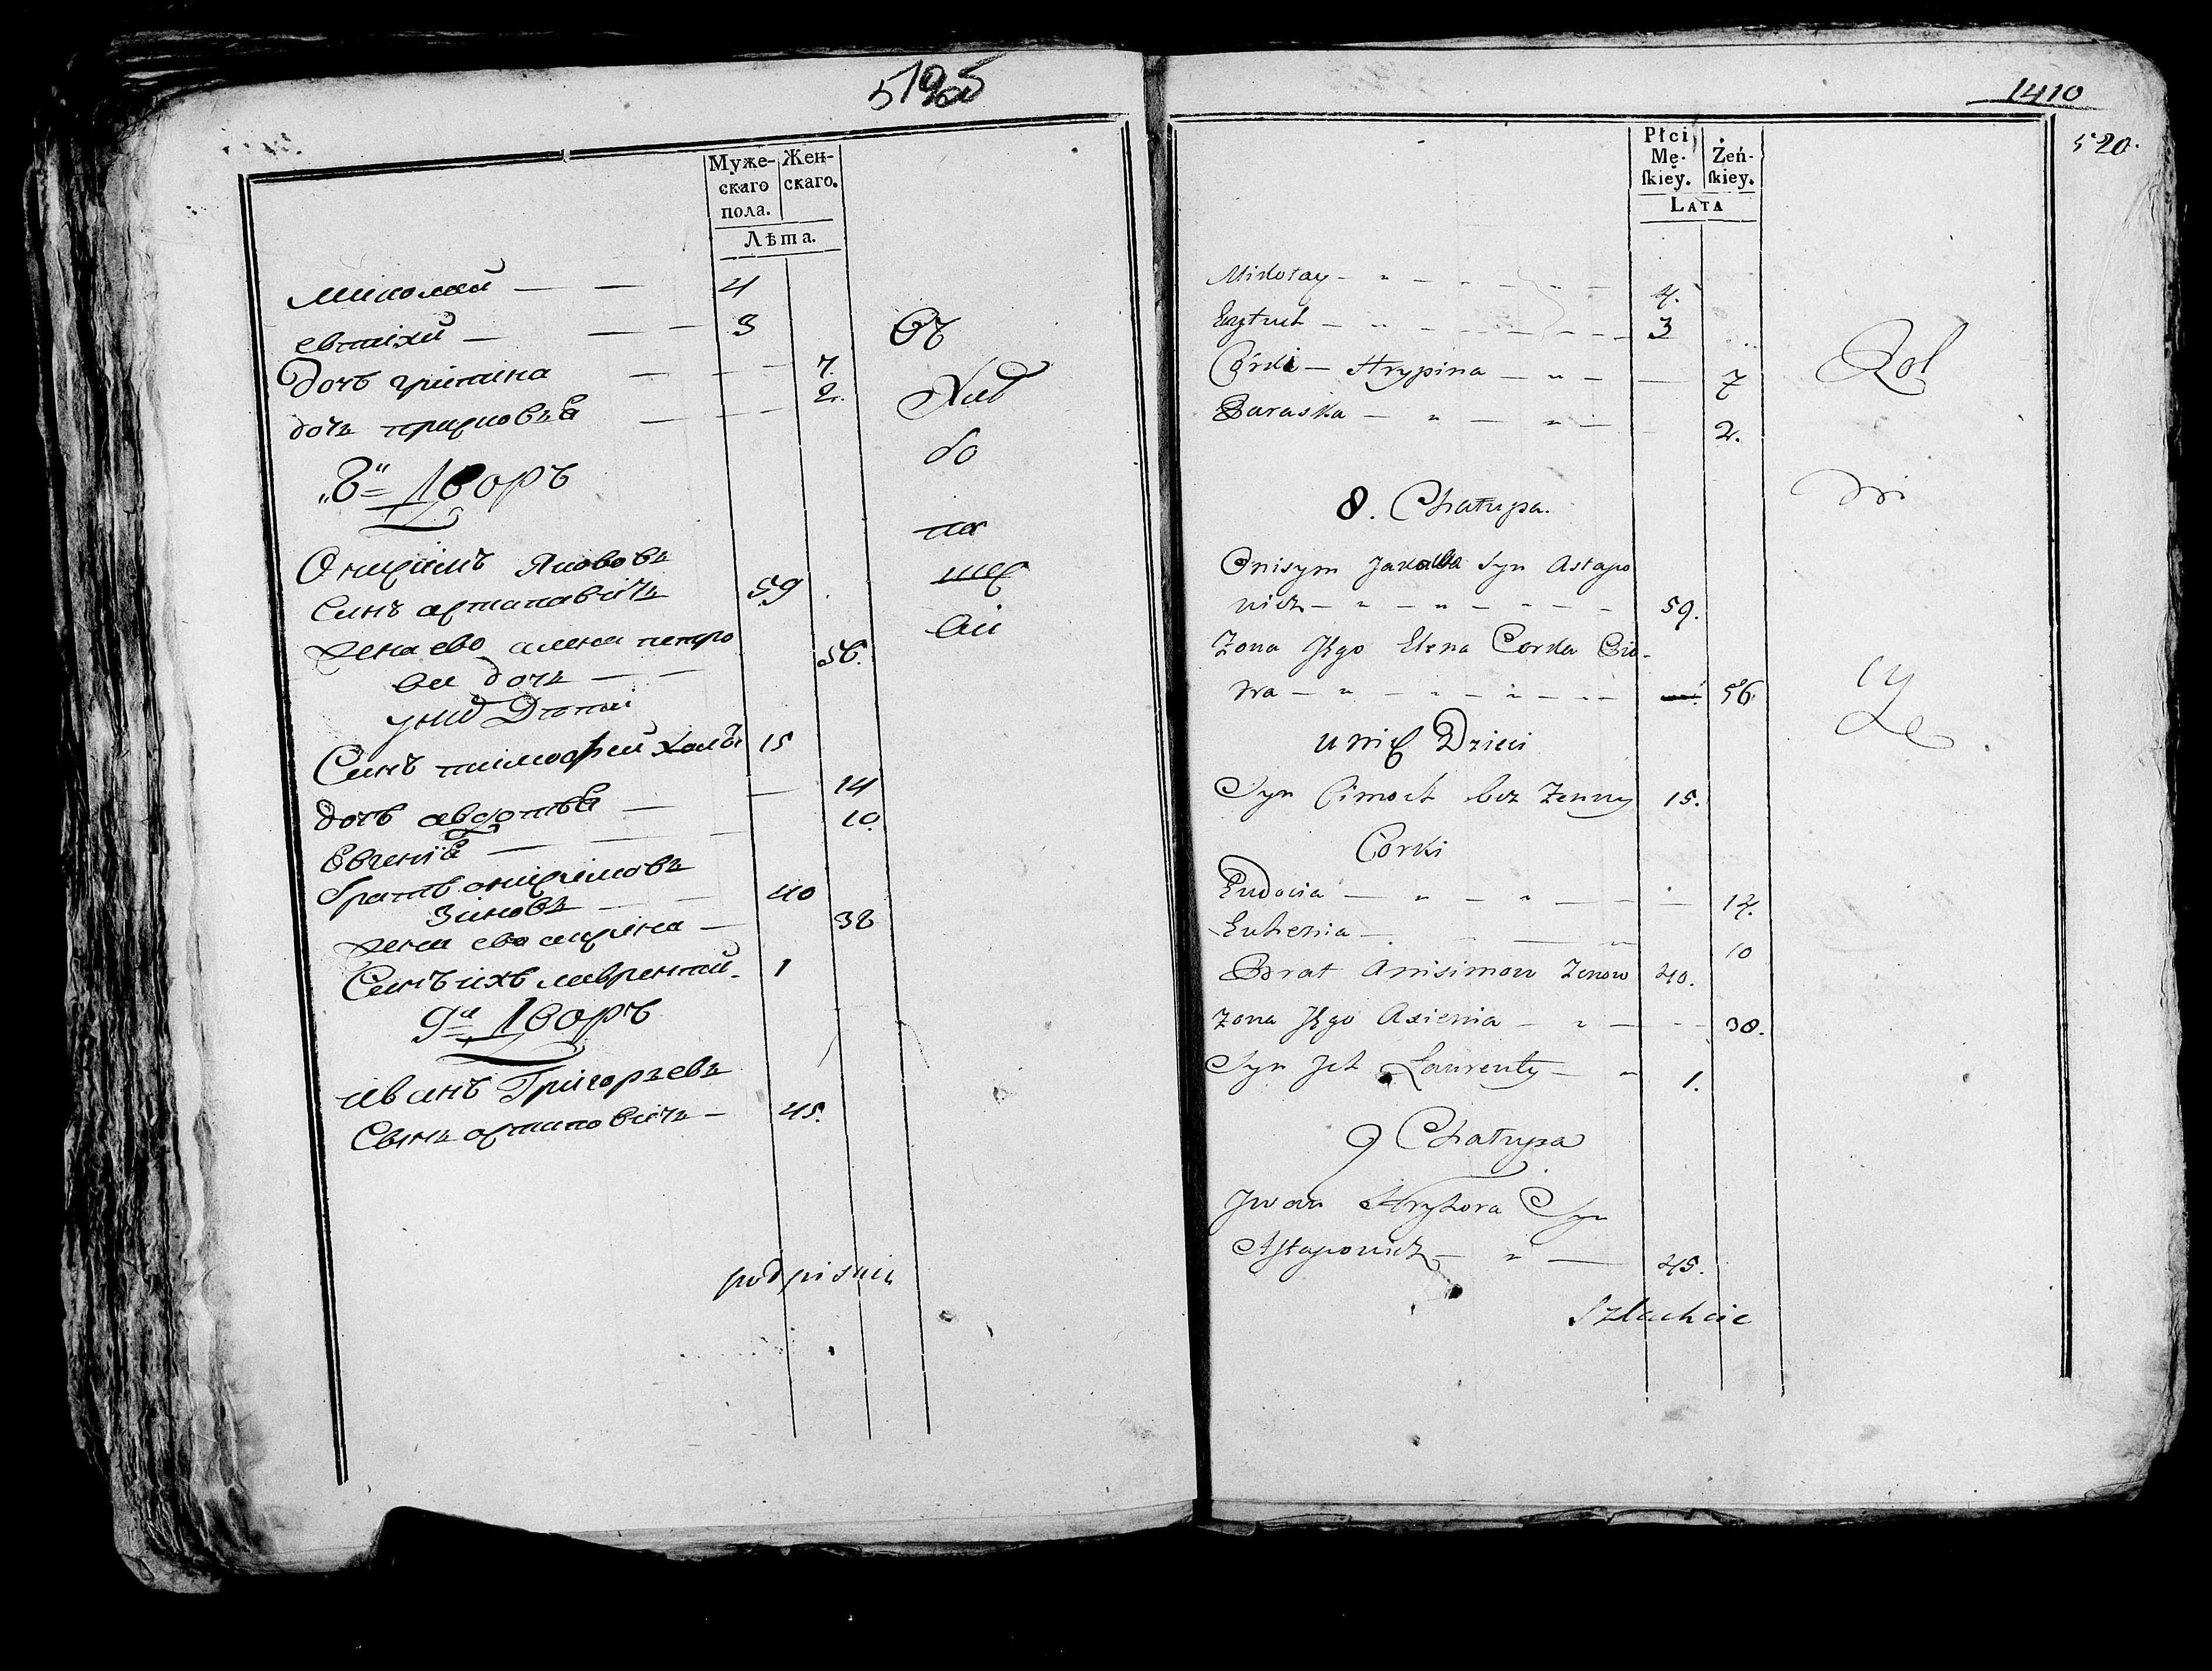 Муже-
скаго
пола.
Жен-
скаго.
Лѣта.
миколай — — 4
евтихи — — — 3
Дочъ гритина — — — 7.
дочь прасковья — — — 2.
Хлѣ
бо
па
ше
ви
"8" дворъ
Онисимъ Якововъ
Синъ астаповичь 59
жена ево алена петро
ви дочь — — 56.
у них Дѣти
Синъ тимофѣй холъ 15
дочъ авдотья — — 14
Евгенія — — — 10.
братъ онисимовъ
зиновь — — 40
жена ево аксиня — 38
Синъ ихъ лаврентій. 1
9й дворъ
иванъ Григорьевъ
Сынъ астаповичь — 45.
podpisuie
1410
520.
Płci
Mę-
skiey.
Żeń-
skiey.
LATA
Mikołay — 4.
Eurtuch — 3
Córki — Hrypina — 7
Paraska — 2.
Rol
ni
cy
8. Chałupa.
Onisym Jakoba Syn Astapo
wicz — 59.
Zona Jego Elena Corka Pio-
tra — 56
u nich Dzieci
Syn Cimoch bez Zenny 15.
Corki
Eudocia — 14.
Euhenia — 10
Brat Anisimow Zenow 40.
Zona Jego Axienia — 38.
Syn Jch Laurenty — 1.
9 Chałupa
Jwan Hryhora Syn
Astapowicz — 45.
Szlachcic